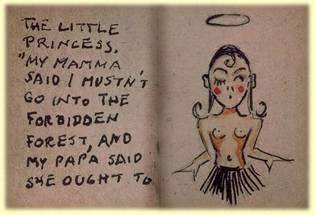 THE LITTLE
PRINCESS.
"MY MAMMA
SAID I MUSTN'T
GO INTO THE
FORBIDDEN
FOREST, AND
MY PAPA SAID
SHE OUGHT TO